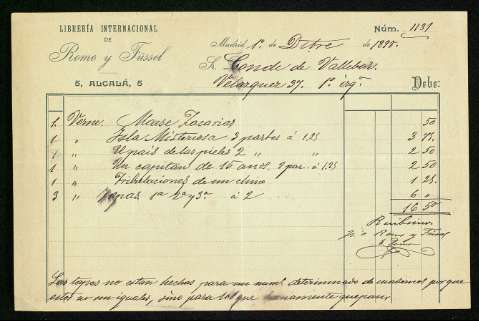 LIBRERÍA INTERNACIONAL
DE
Romo y Füssel
5, ALCALÁ, 5
Núm. 1131
Madrid 1º de Dbre de 1898.
S. Conde de Vallebar
Velazquez 37. 1º izqª
Debe:
1. Verne. Maese Zacarias 50
1 " Isla Misteriosa 3 partes á 1.25 3 75
1 " El pais de las pieles 2 " " 2 50
1 " Un capitan de 15 anos, 2 par. á 1.25 2 50
1 " Tribulaciones de un chino 1 25
3 " Tapas 1ª 2ª y 3ª á 2 6 "
16 50
Recibimos
Romo y Füssel
Las tapas no estan hechas para un num. determinado de cuadernos porque
estos no son iguales, sino para los que buenamente quepan.